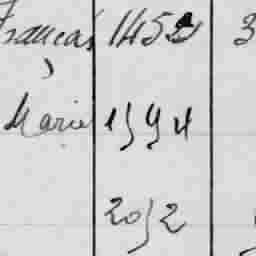 François 1452 3
Marie 1994
2092